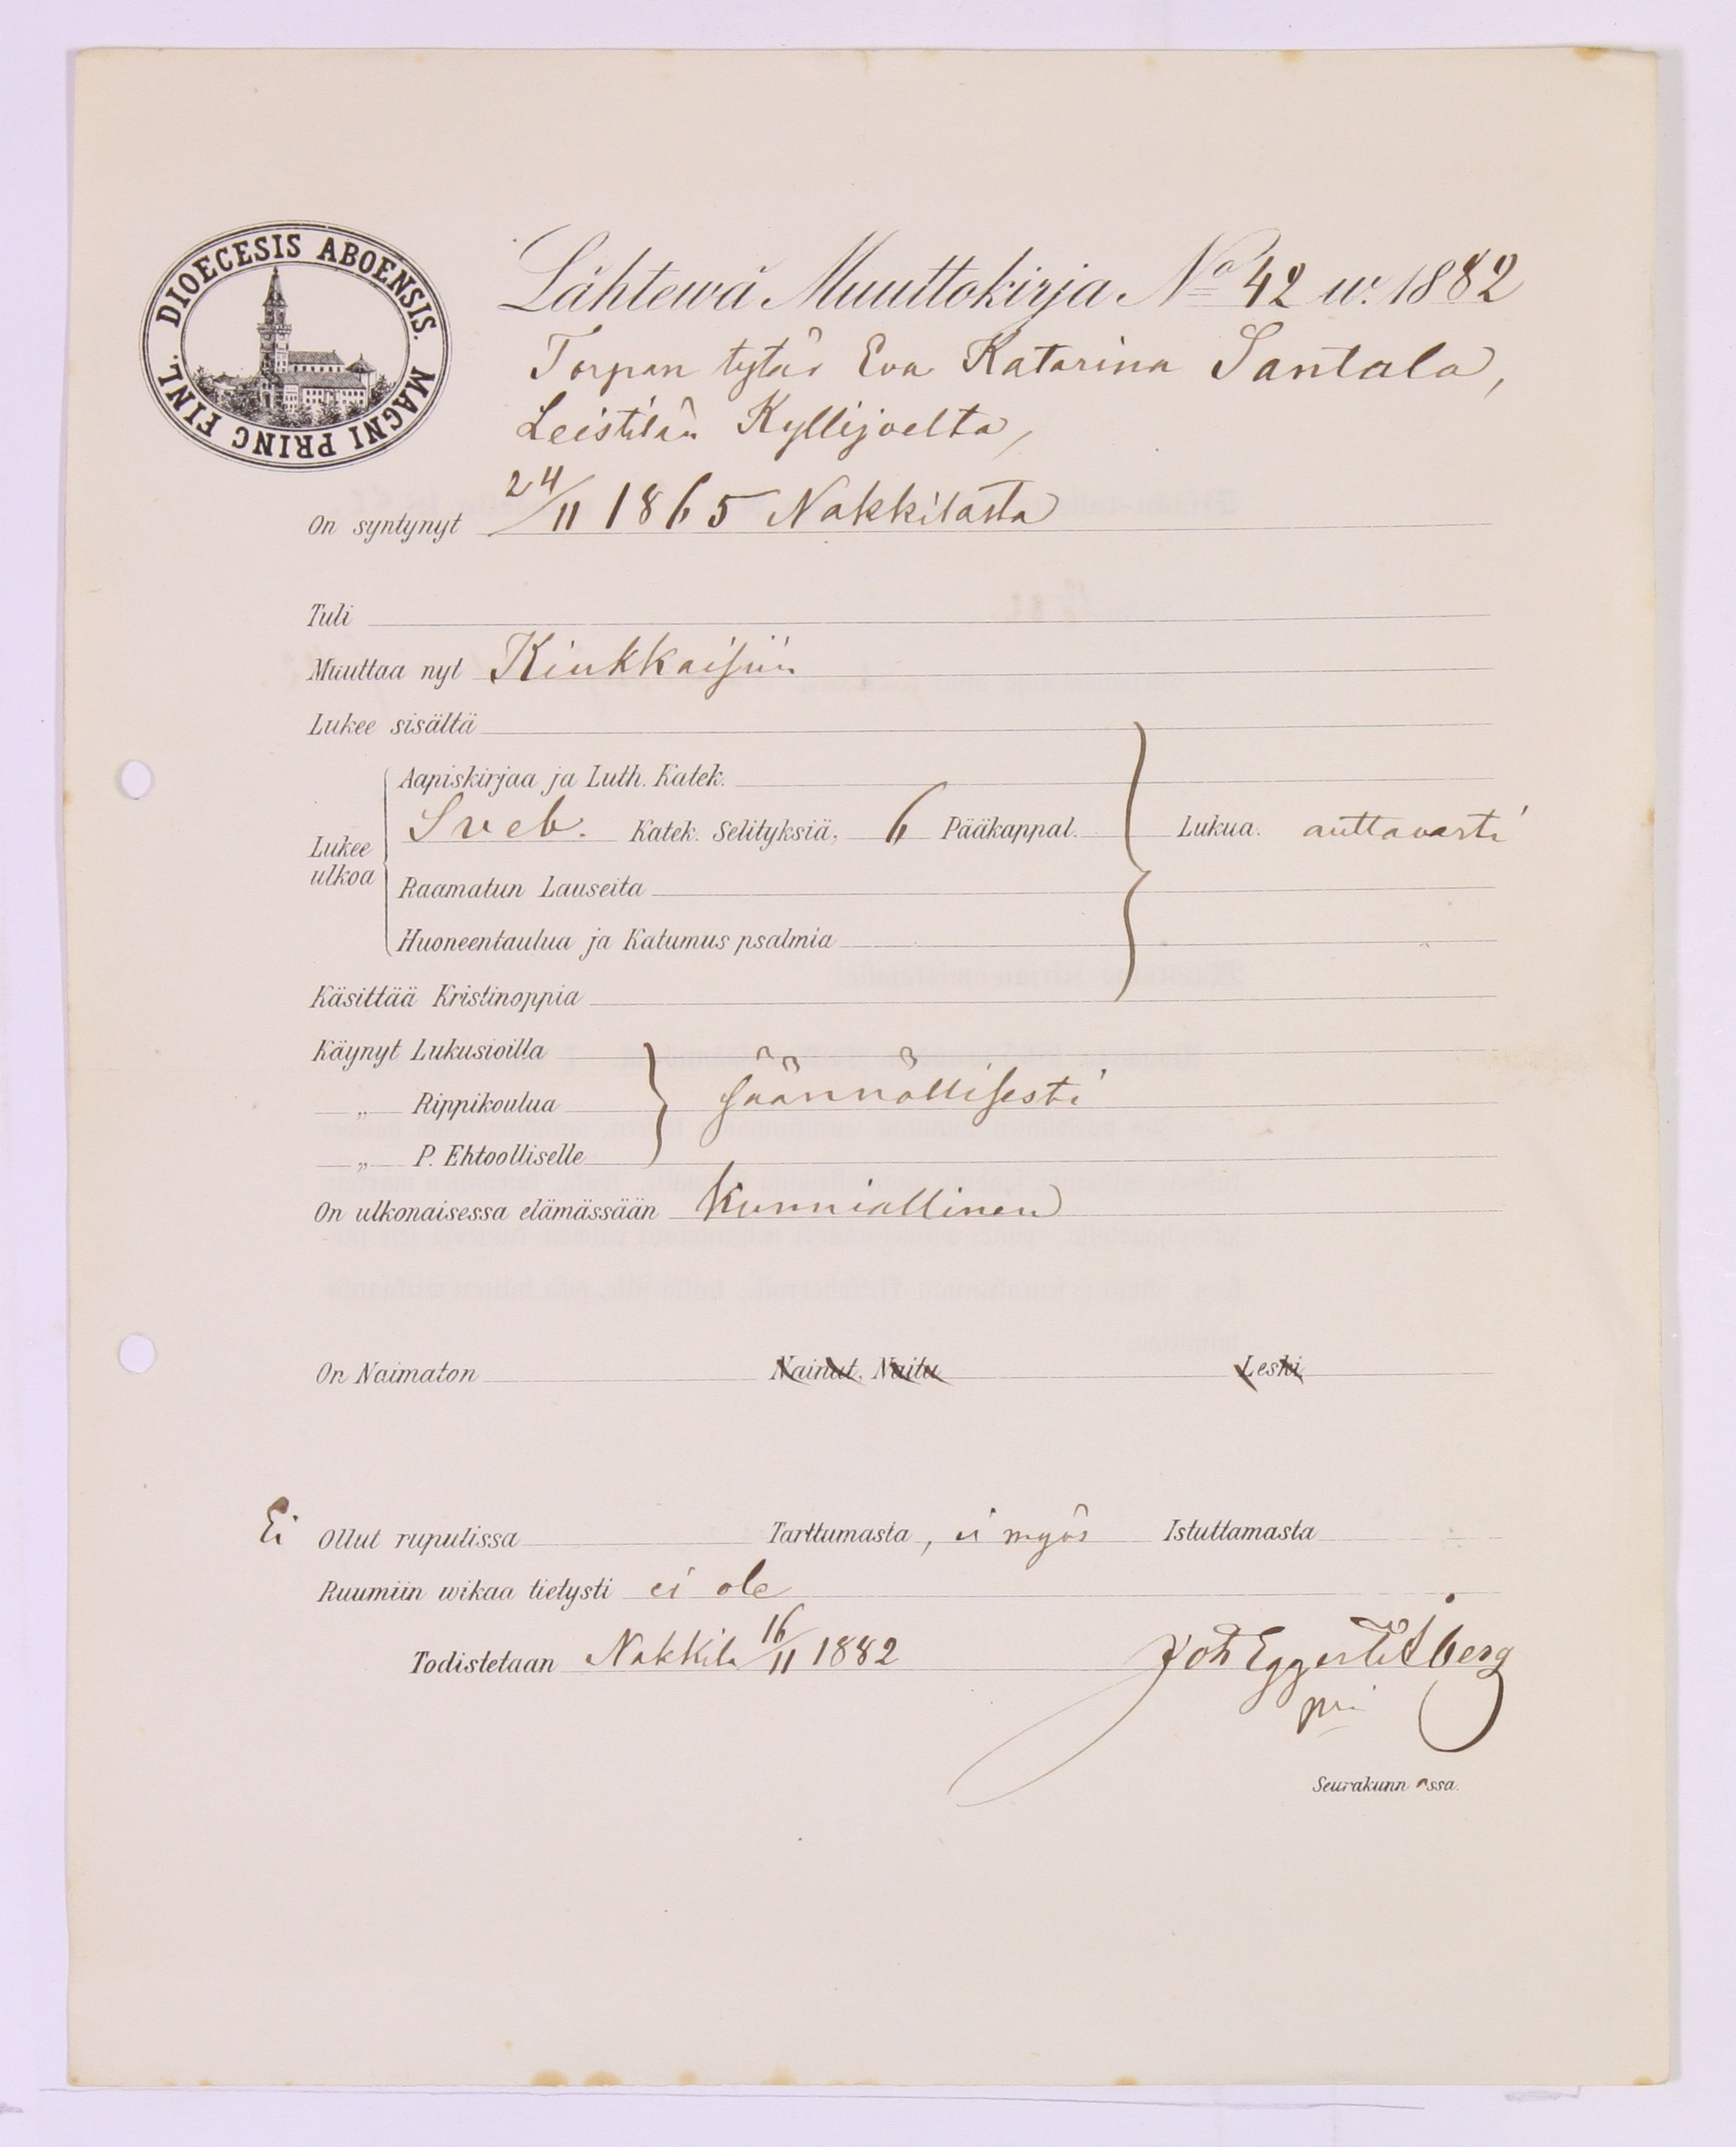 DIOECESIS ABOENSIS. MAGNI PRINC FINL.
Lähtewä Muuttokirja No 42 w. 1882
Torpan tytär Eva Katarina Santala,
Leistilän Kyllijoelta,
On syntynyt 24/11 1865 Nakkilasta
Tuli
Muuttaa nyt Kiukkaisiin
Lukee sisältä
Aapiskirjaa ja Luth. Katek.
Lukee ulkoa
Sveb. Katek. Selityksiä, 6 Pääkappal. Lukua. auttavasti
Raamatun Lauseita
Huoneentaulua ja Katumus psalmia
Käsittää Kristinoppia
Käynyt Lukusioilla
„ Rippikoulua säännöllisesti
„ P. Ehtoolliselle
On ulkonaisessa elämässään Kunniallinen
On Naimaton Nainut, Naitu Leski
Ei Ollut rupulissa Tarttumasta, ei myös Istuttamasta
Ruumiin wikaa tietysti ei ole
Todistetaan Nakkila 16/11 1882 Joh Eggert
Seurakunn ssa.